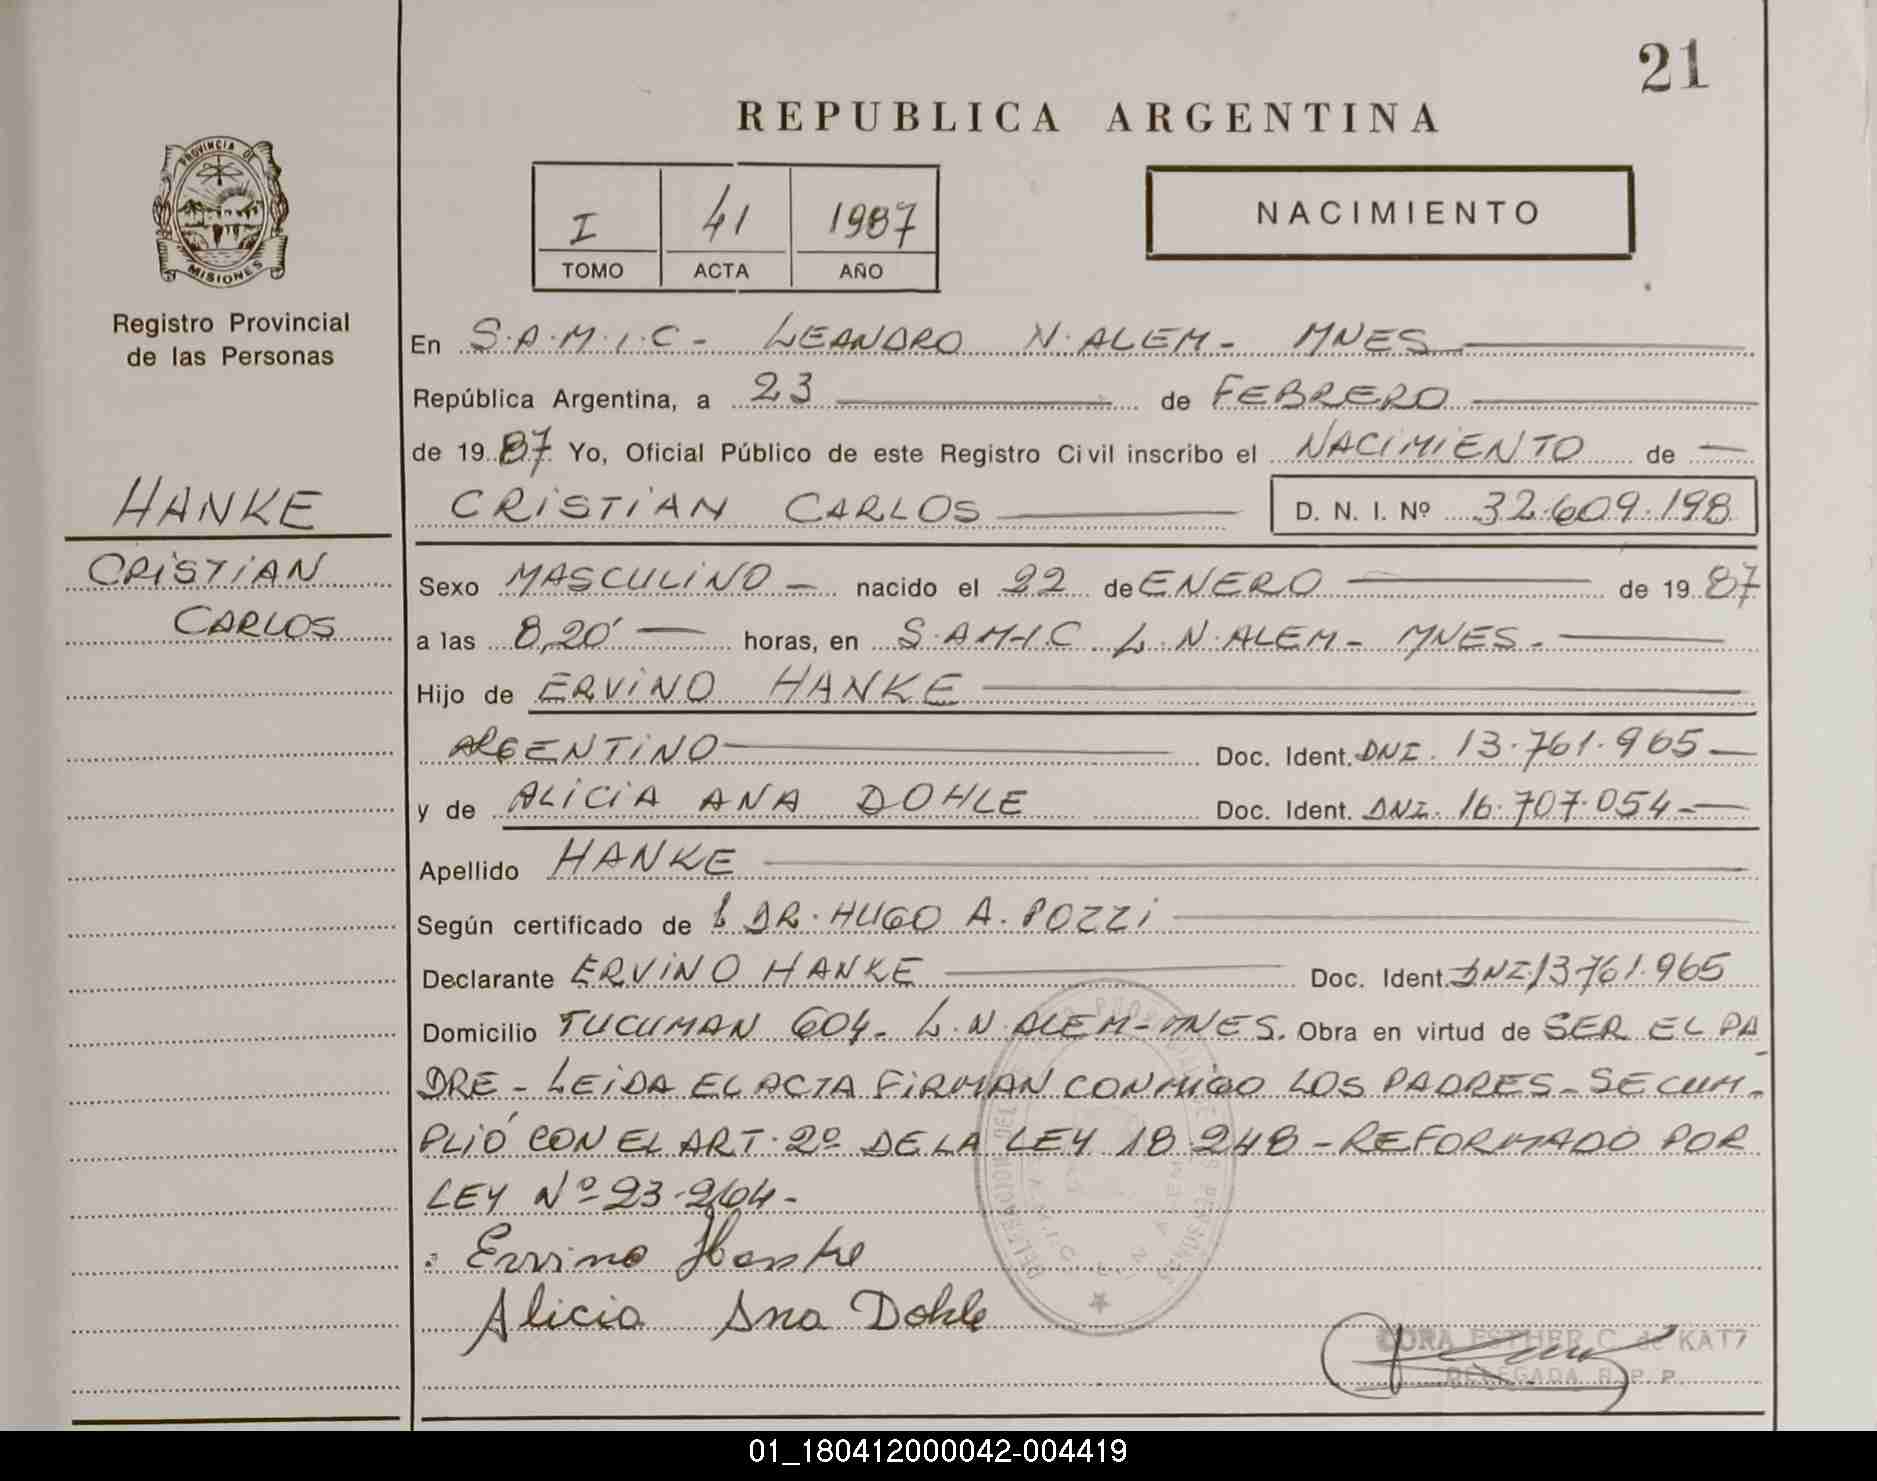 21
REPUBLICA ARGENTINA
PROVINCIA DE
MISIONES
Registro Provincial
de las Personas
I 41 1987
TOMO ACTA AÑO
NACIMIENTO
En S.A.M.I.C - LEANDRO N. ALEM - MNES
República Argentina, a 23 de FEBRERO
de 1987 Yo, Oficial Público de este Registro Civil inscribo el NACIMIENTO de
HANKE
CRISTIAN CARLOS D. N. I. Nº 32.609.198
CRISTIAN
CARLOS
Sexo MASCULINO - nacido el 22 de ENERO de 1987
a las 8,20' horas, en S.A.M.I.C L.N. ALEM - MNES.
Hijo de ERVINO HANKE
ARGENTINO Doc. Ident. DNI. 13.761.965
y de ALICIA ANA DOHLE Doc. Ident. DNI. 16.707.054
Apellido HANKE
Según certificado de DR. HUGO A. POZZI
Declarante ERVINO HANKE Doc. Ident. DNI. 13761.965
Domicilio TUCUMAN 604- L.N. ALEM - MNES. Obra en virtud de SER EL PA-
DRE - LEIDA EL ACTA FIRMAN CONMIGO LOS PADRES - SE CUM-
PLIÓ CON EL ART. 2º DE LA LEY 18.248 - REFORMADO POR
LEY Nº 23.264 -
Ervino Hanke
Alicia Ana Dohle
CORA ESTHER C. de KATZ
DELEGADA R. P. P.
01_180412000042-004419